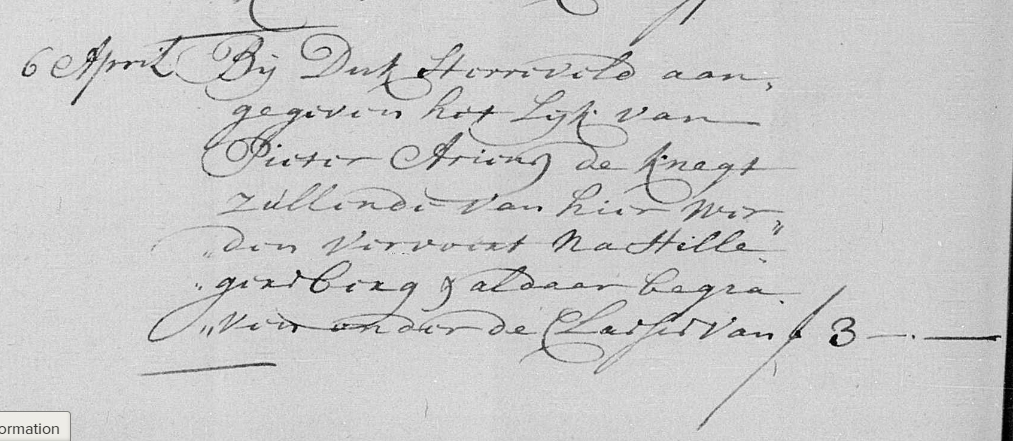 6 April Bij Dirk Sterreveld aan„
gegeven het Lijk van
Pieter Ariens de Knegt
zullende van hier wer„
„den vervoert Na Hille„
„gersberg & aldaar begra„
„ven onder de Classis van ƒ 3 —.—
ormation